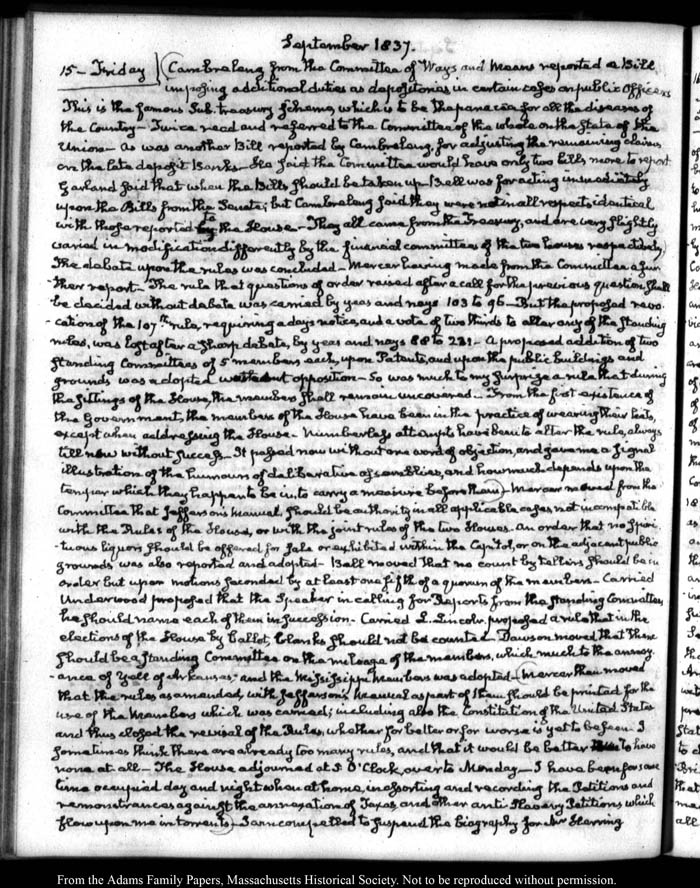 September 1837.
15 - Friday } (Cambreleng from the Committee of Ways and Means reported a Bill
imposing additional duties as depositories in certain cases on public Officers
This is the famous Sub-treasury scheme, which is to be the panacea for all the diseases of
the Country - Twice read and referred to the Committee of the whole on the State of the
Union - as was another Bill reported by Cambreleng, for adjusting the remaining claims
on the late deposit Banks - He said the Committee would have only two bills more to report
Garland said that when the Bills should be taken up - Bell was for acting immediately
upon the Bills from the Senate; but Cambreleng said they were not in all respects identical
with those reported to the House - They all came from the Treasury, and are very slightly
varied in modification differently by the financial committees of the two houses respectively)
The debate upon the rules was concluded - Mercer having made from the Committee a fur
-ther report - The rule that questions of order raised after a call for the previous question, shall
be decided without debate was carried by yeas and nays 103 to 96 - But the proposed revo
-cation of the 107th rule, requiring a days notice, and a vote of two thirds to alter any of the standing
rules, was lost after a sharp debate, by yeas and nays 88 to 231 - A proposed addition of two
Standing Committees of 5 members each, upon Patents, and upon the public buildings and
grounds was adopted without opposition - So was much to my surprize a rule that during
the sittings of the House, the members shall remain uncovered - From the first existence of
the Government, the members of the House have been in the practice of wearing their hats,
except when addressing the House - Numberless attempts have been to alter the rule, always
till now without success - It passed now without one word of objection, and gave me a signal
illustration of the humours of deliberative assemblies, and how much depends upon the
temper which they happen to be in, to carry a measure before them) - Mercer moved from the
Committee that Jefferson's Manual should be authority in all applicable cases not incompatible
with the Rules of the House, or with the joint rules of the two Houses. An order that no spiri
-tuous liquors should be offered for sale or exhibited within the Capitol, or on the adjacent public
grounds was also reported and adopted - Bell moved that no count by tellers should be in
order but upon motions seconded by at least one fifth of a quorum of the members - Carried
Underwood proposed that the Speaker in calling for Reports from the standing Committees,
he should name each of them in succession - Carried L. Lincoln proposed a rule that in the
elections of the House by ballot, blanks should not be counted - Dawson moved that there
should be a standing Committee on the mileage of the members, which much to the annoy
-ance of Yell of Arkansas, and the Mississippi members was adopted - (Mercer then moved
that the rules as amended, with Jefferson's Manual as part of them should be printed for the
use of the Members which was carried; including also the Constitution of the United States
and thus closed the revisal of the Rules, whether for better or for worse is yet to be seen. I
sometimes think there are already too many rules, and that it would be better to have
none at all - The House adjourned at 5 O'Clock, over to Monday - I have been for some
time occupied day and night when at home, in assorting and recording the Petitions and
remonstrances against the annexation of Texas, and other anti-Slavery Petitions which
flow upon me in torrents) - I am compelled to suspend the biography for Mr Herring
From the Adams Family Papers, Massachusetts Historical Society. Not to be reproduced without permission.